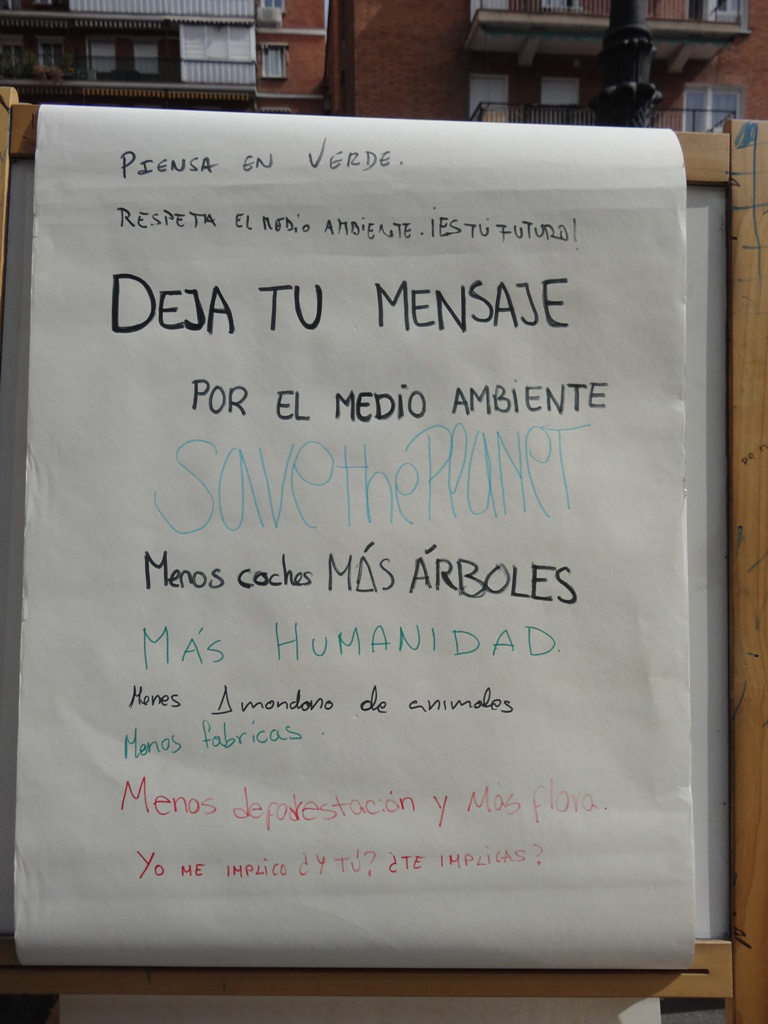 PIENSA EN VERDE.
RESPETA EL MEDIO AMBIENTE. ¡ES TÚ FUTURO!
DEJA TU MENSAJE
POR EL MEDIO AMBIENTE
Save the Planet
Menos coches MÁS ÁRBOLES
MÁS HUMANIDAD.
Menes Amondono de animales
Menos fabricas.
Menos deforestación y Más flora.
YO ME IMPLICO ¿Y TÚ? ¿TE IMPLICAS?